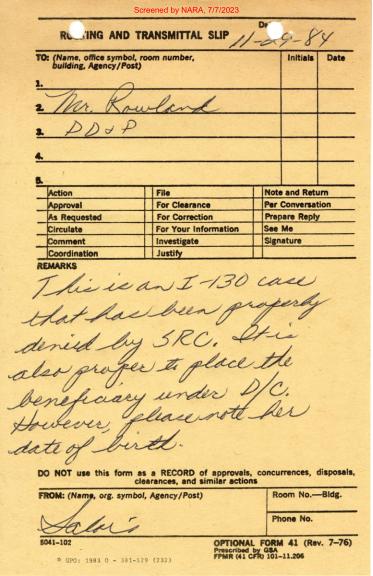 Screened by NARA, 7/7/2023
ROUTING AND TRANSMITTAL SLIP
Da
11-29-84
TO: (Name, office symbol, room number, building, Agency/Post)
Initials
Date
1.
2. Mr. Rowland
3. DD&P
4.
5.
Action File Note and Return
Approval For Clearance Per Conversation
As Requested For Correction Prepare Reply
Circulate For Your Information See Me
Comment Investigate Signature
Coordination Justify
REMARKS
This is an I-130 case
that has been properly
denied by SRC. It is
also proper to place the
beneficiary under D/C.
However, please note her
date of birth.
DO NOT use this form as a RECORD of approvals, concurrences, disposals,
clearances, and similar actions
FROM: (Name, org. symbol, Agency/Post)
Room No.—Bldg.
Phone No.
5041-102
OPTIONAL FORM 41 (Rev. 7-76)
Prescribed by GSA
FPMR (41 CFR) 101-11.206